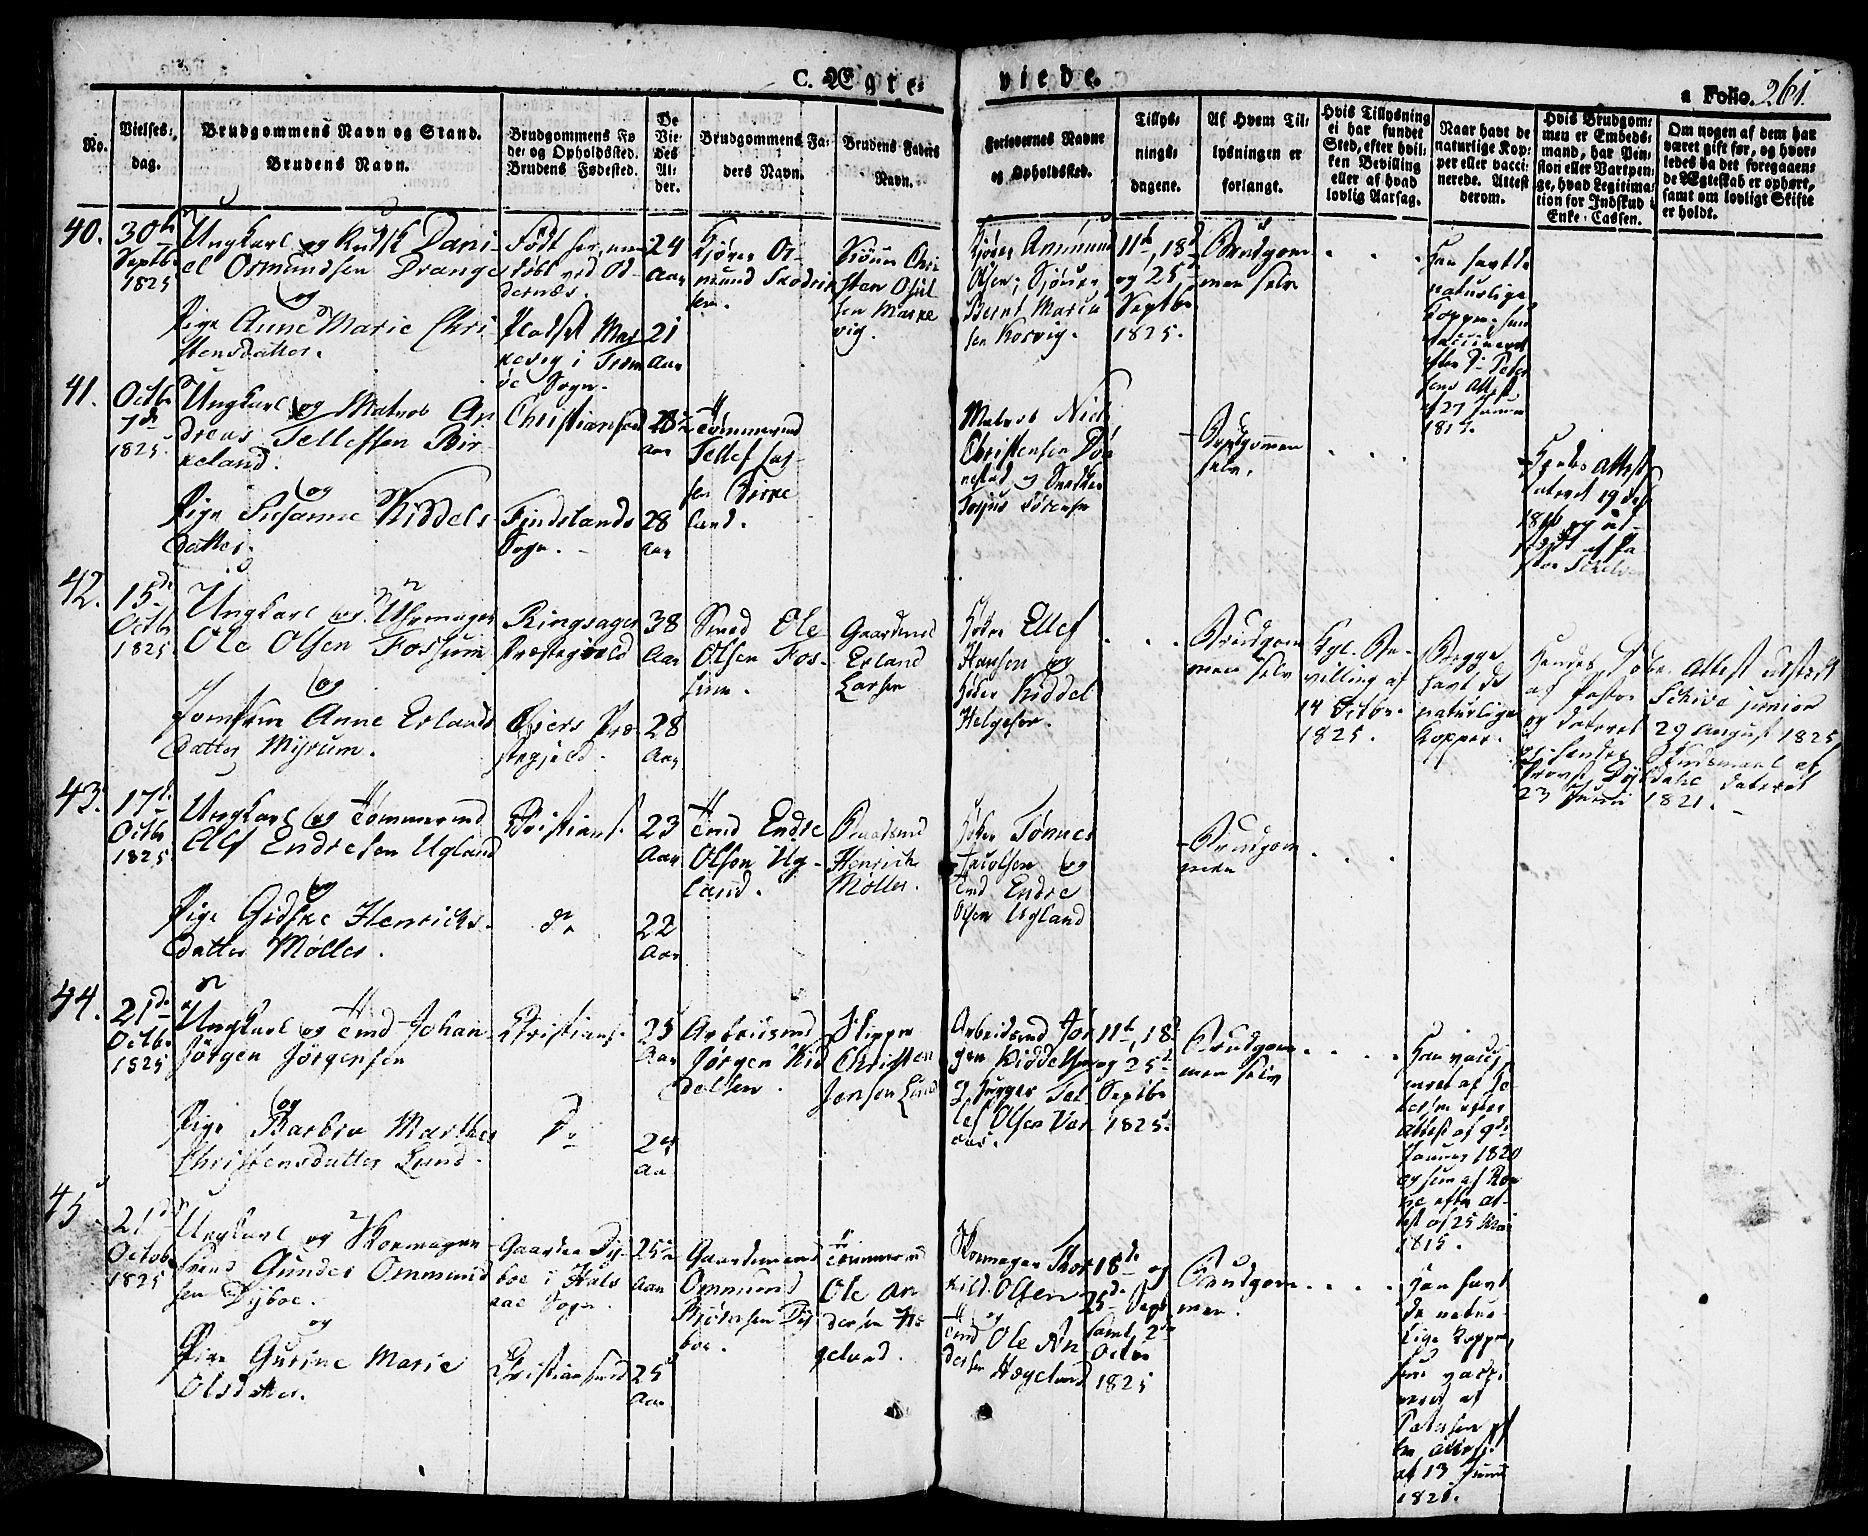 C. Ægte-
viede.
a Folio. 261.
No.
Vielses-
dag.
Brudgommens Navn og Stand.
Brudens Navn.
Brudgommens Fø-
de- og Opholdssted.
Brudens Fødested.
De
Vie-
des
Al-
der.
Brudgommens Fa-
ders Navn.
Brudens Faders
Navn.
Forlovernes Navne
og Opholdssted.
Tillys-
nings-
dagene.
Af Hvem Til-
lysningen er
forlangt.
Hvis Tillysning
ei har fundet
Sted, efter hvil-
ken Bevilling
eller af hvad
lovlig Aarsag.
Naar havt de
naturlige Kop-
per eller vacci-
nerede. Attest
derom.
Hvis Brudgom-
men er Embeds-
mand, har Pen-
sion eller Vartpen-
ge, hvad Legitima-
tion for Indskud i
Enke-Cassen.
Om nogen af dem har
været gift før, og hvor-
ledes da det foregaaen-
de Ægteskab er ophørt,
samt om lovligt Skifte
er holdt.
40.
30te
Septbr
1825
Ungkarl og Kudsk Dani-
el Osmundsen Drange
og
Pige Anne Marie Chri-
stensdatter.
Født her, men
døbt ved Od-
dernæs.
Pladsen Mar-
kevig i Trom
öe Sogn.
24
Aar
21
Aar
Osmund
sen.
Christen
sen Marke
vig.
Amund
Olsen;
Bernt
sen Korsvig.
11te, 18de
og 25de
Septbr
1825.
Brudgom-
men selv
Han havt de
naturlige
Kopper. hun
vaccineret
efter
1817.
41.
Octbr
7de
1825.
Ungkarl og Matros An-
dreas Tellefsen Bir-
keland.
og
Pige Susanne Kiddels-
datter.
Christiansand
Findslands
Sogn.
28
Aar
28
Aar
Tömmermd
Tellef
sen Birke
land.
Matros Niels
Christensen
og Snedker
Torjus Sörensen
Brudgommen
selv.
Hendes Attest
dateret 19de
42.
15de
Octbr
1825
Ungkarl og Uhrmager
Ole Olsen Fossum
og
Jomfrue Anne Erlands
datter Myrum.
Ringsager
Præstegield
Præ-
stegjeld.
38
Aar
28
Aar
Smed Ole
Olsen Fos-
sum.
Gaardmd
Erland
Larsen
Höker Ellef
Hansen og
Höker Kiddel
Helgesen.
Brudgom
men selv
Kgl. Be-
villing af
14 Octbr.
1825.
Begge
havt de
naturlige
Kopper.
Hendes Döbe Attest udstedt
af Pastor Schive junior
og dateret 29 August 1825,
og hendes Skudsmaal af
Provst dateret
23 Juni 1821.
43.
17de
Octbr
1825
Ungkarl og Tömmermd
Alf Endresen Ugland
og
Pige Gidske Henrichs-
datter Møller.
Christians.
do
23
Aar
22
Aar
Tmd Endre
Olsen Ug-
land.
Henrich
Møller.
Höker Tønnes
Jacobsen og
Tmd Endre
Olsen Ugland
Brudgom
men
44.
21de
Octbr
1825
Ungkarl og Tmd Johan
Jörgen Jörgensen
og
Pige Barbra Marthea
Christensdatter Lund.
Christians.
do
25
Aar
Aar
Arbeidsmd
Jørgen Kid
delsen.
Skipper
Christen
Jensen Lund
Arbeidsmd Jör
gen Kiddelsen
og Borger Tel
lef Olsen
11te, 18de
og 25de
Septbr
1825.
Brudgom-
men selv
Han vacci
neret af Pe
tersen efter
Attest af 9de
Januar 1820
og hun af
efter At-
test af 25 Mai
1815.
45.
21de
Octobr
1825
Ungkarl og Skomager
svend Gunder Ommund
sen Dyboe.
og
Pige Gurine Marie
Olsdatter.
Gaarden Dy-
boe i Hals
aae Sogn.
Christiansand
25
Aar
25
Aar
Gaardmand
Ommund
Bjørnsen Dy
boe.
Tömmermd
Ole An
dersen Hæ
geland.
Skomager Thor
kild Olsen
og
Tmd Ole An
dersen Hægeland
18de og
25de Septbr
samt 2den
Octbr
1825
Brudgom
men.
Han havt
de natur
lige Kopper,
hun vacci
neret af
Petersen ef
ter Attest
af 13 Juni
1821.